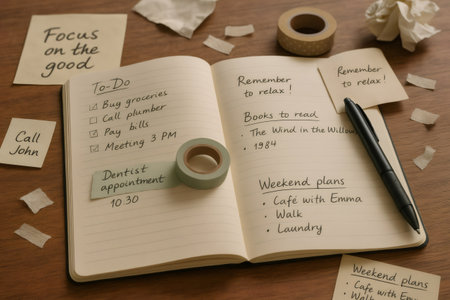 Focus
on the
good
Call
John
To-Do
Buy groceries
Call plumber
Pay bills
Meeting 3 PM
Dentist
appointment
10.30
Remember
to relax!
Books to read
• The Wind in the Willow
• 1984
Weekend plans
• Café with Emma
• Walk
• Laundry
Remember
to relax!
Weekend plans
• Café with Emma
• Walk